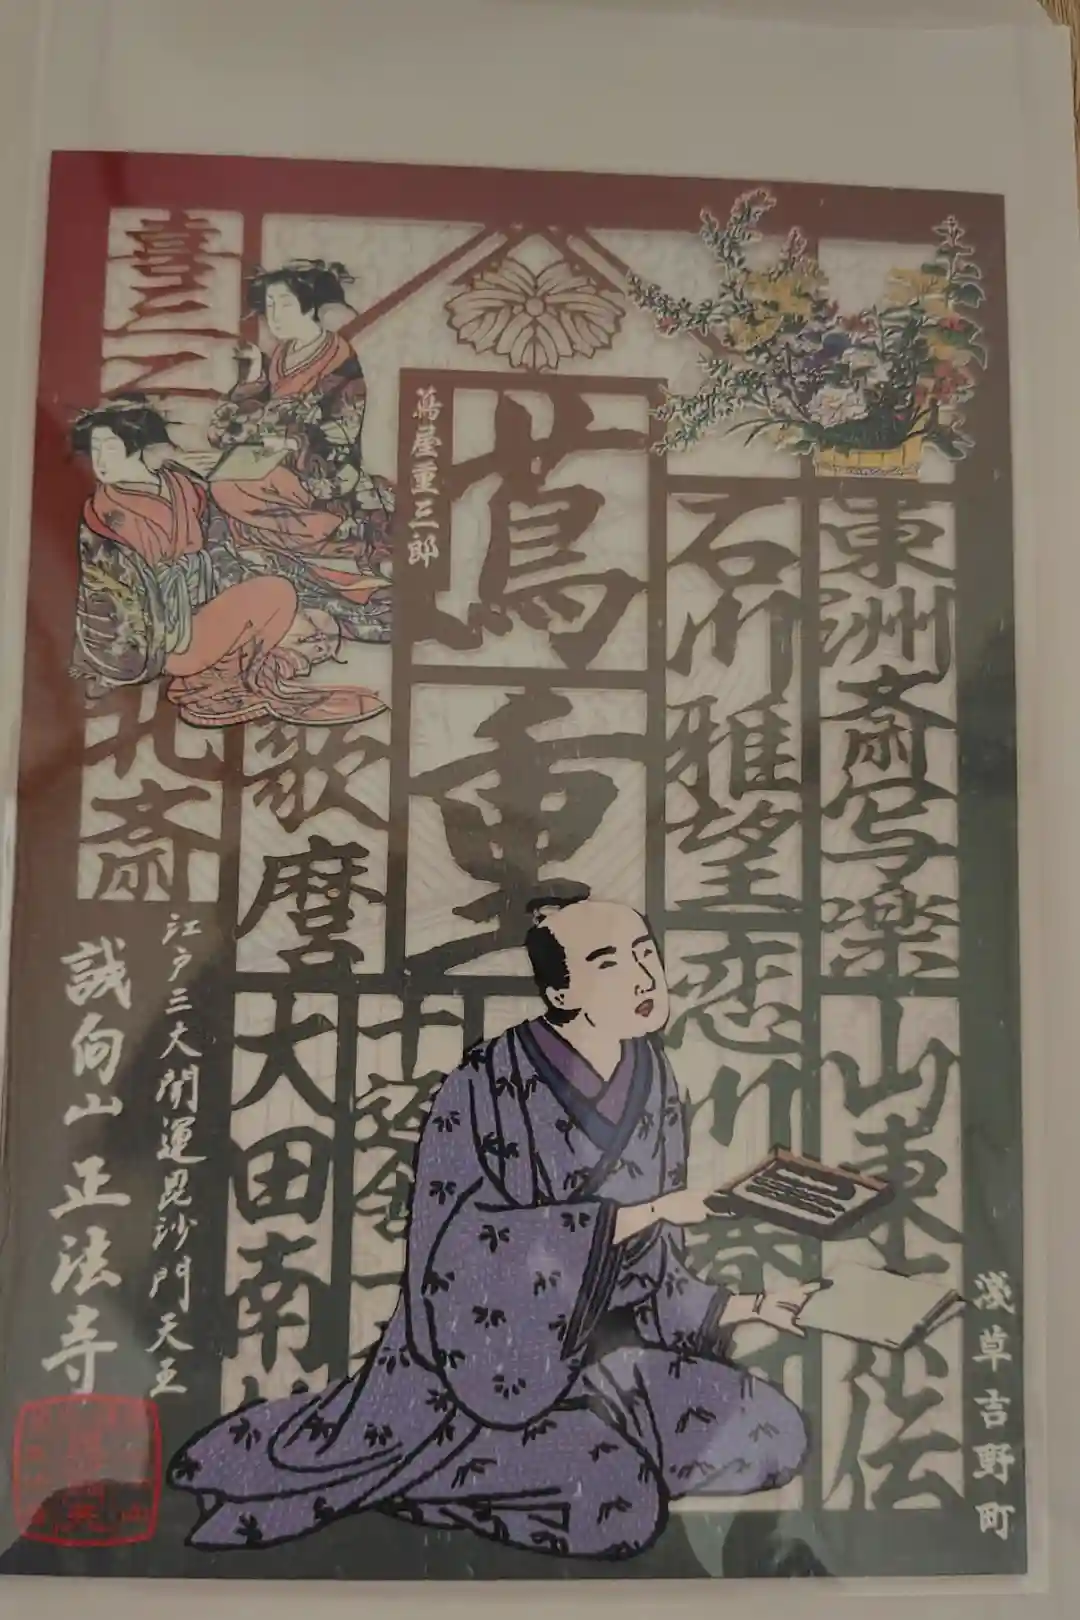 東洲斎写楽
山東
伝
浅草吉野町
石川雅望
恋川春
蔦屋重三郎
蔦重
十返舎一
歌麿
大田南
喜三二
北斎
江戸三大開運毘沙門天王
誠向山正法寺